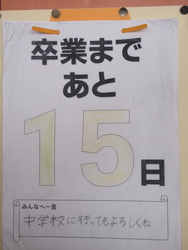 卒業まで
あと
15日
みんなへ一言
中学校に行ってもよろしくね